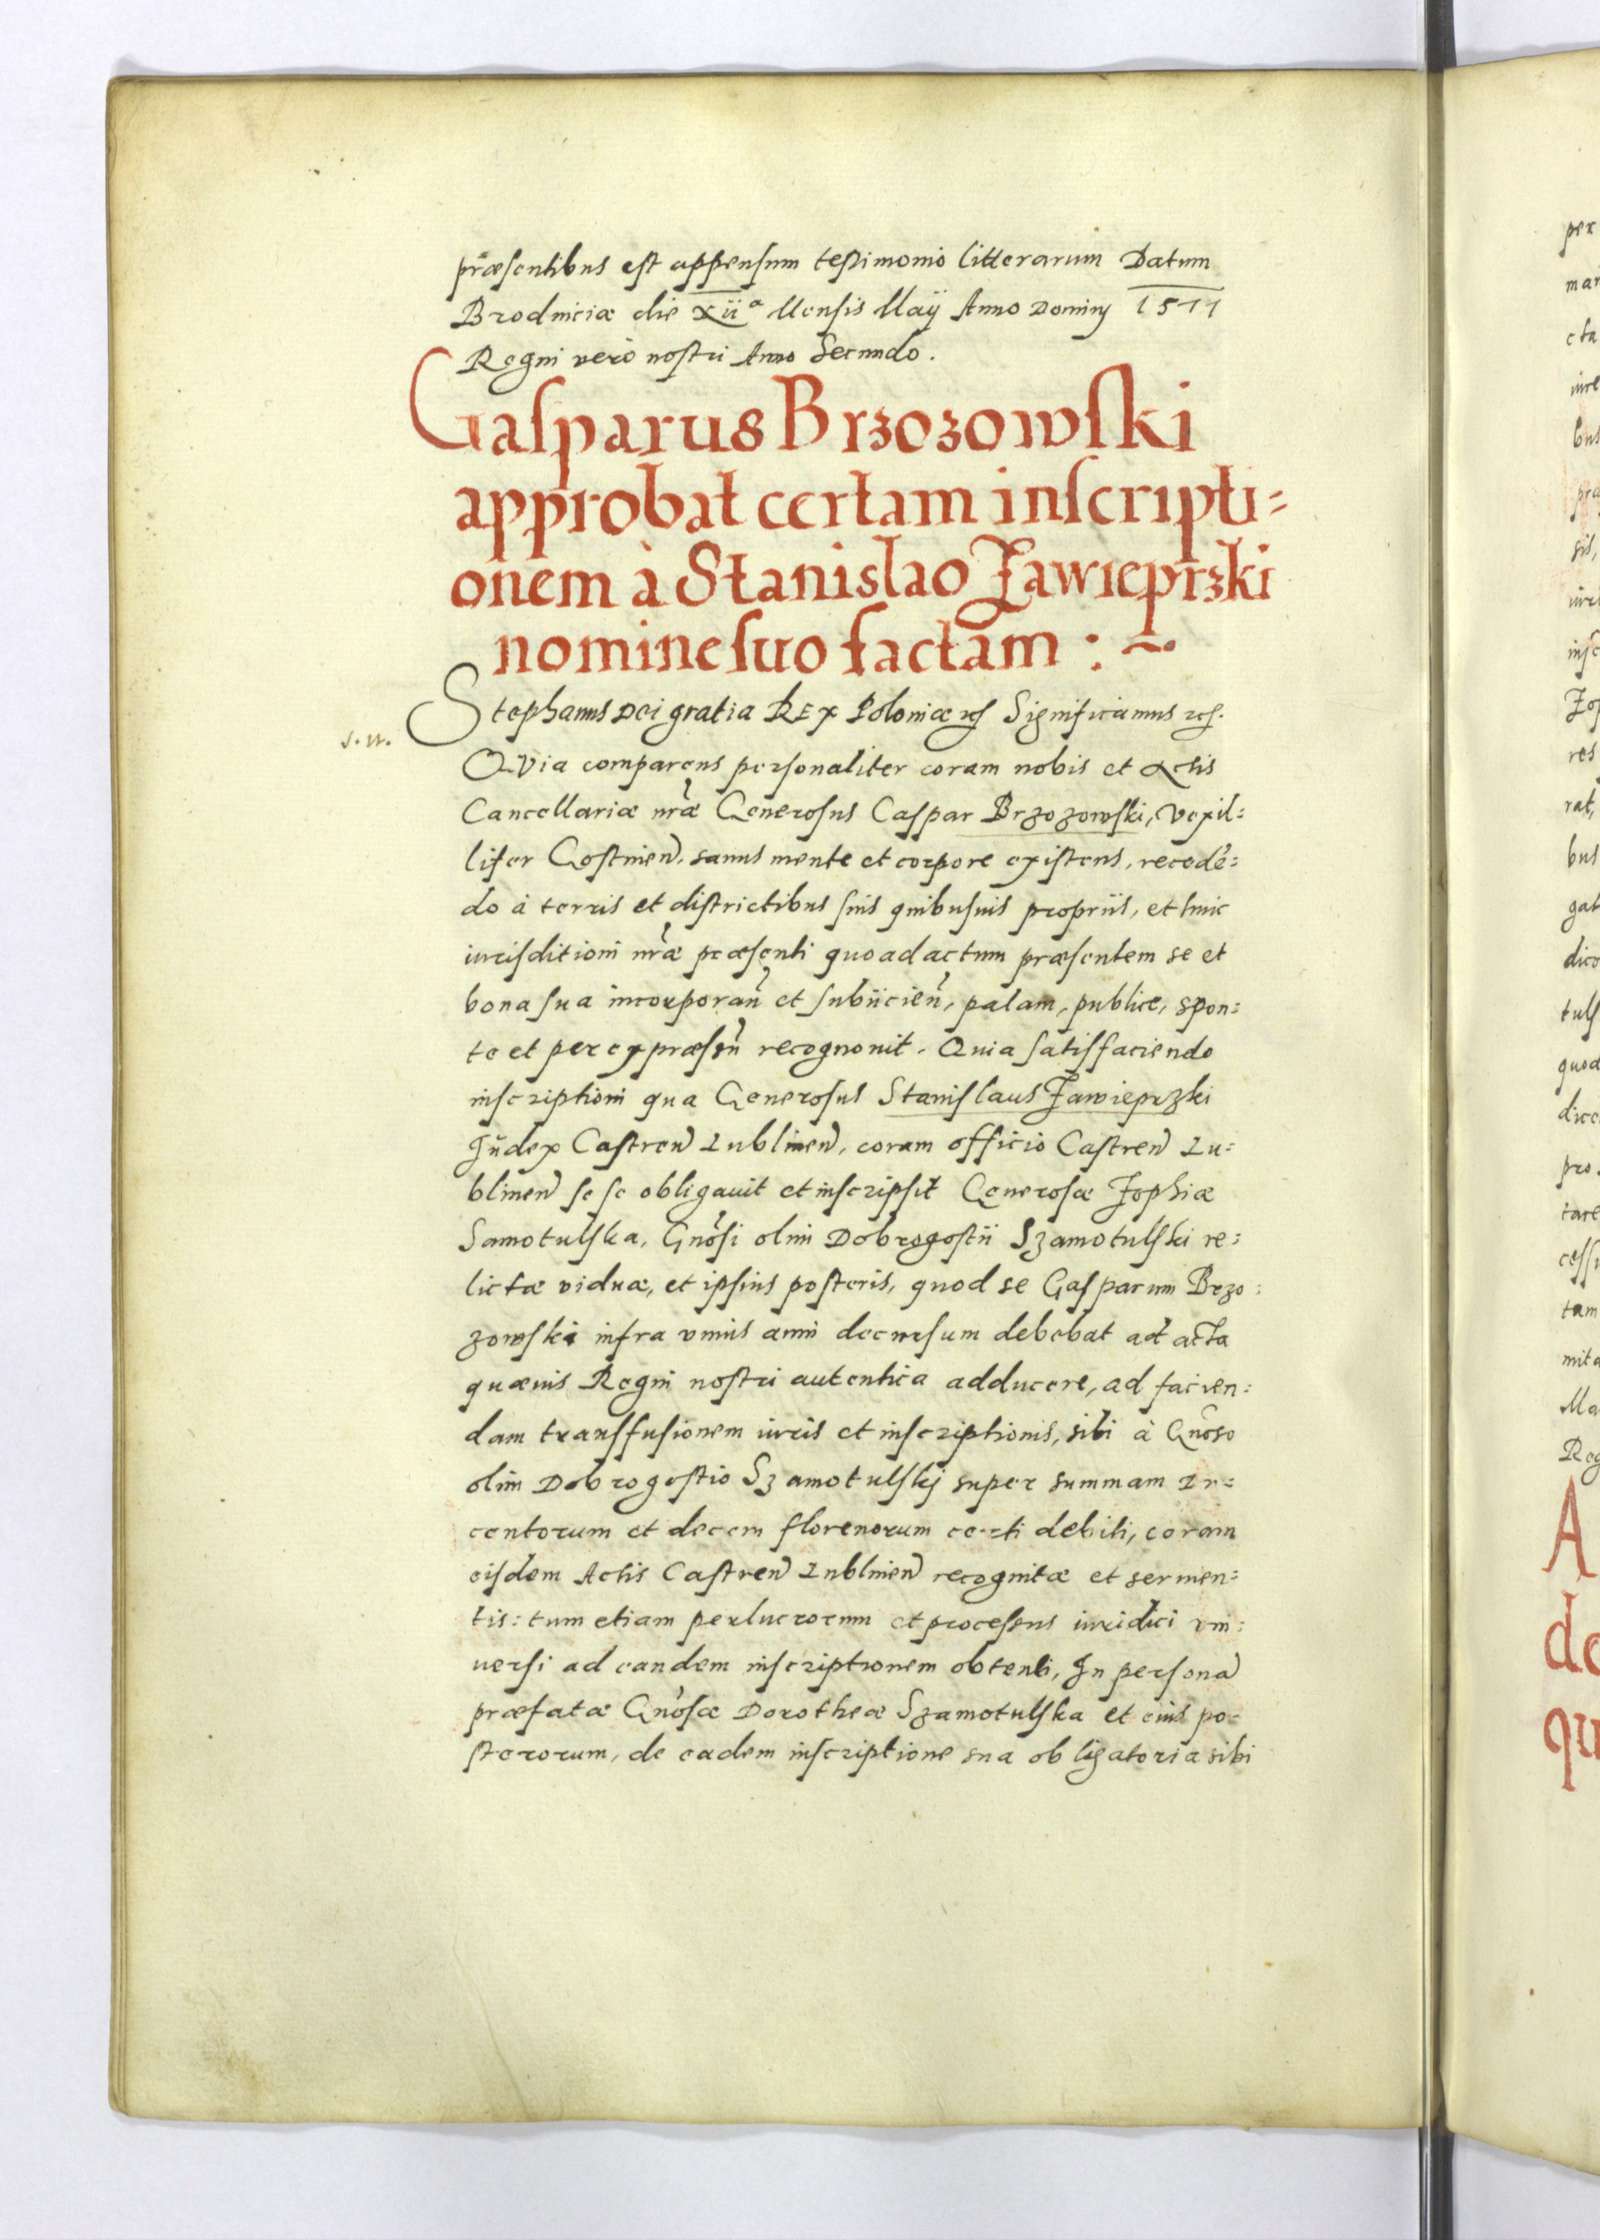 præsentibus est appensum testimonio litterarum Datum
Brodniciæ die xiiª Mensis Maÿ Anno Dominj 1577
Regni verò nostri Anno Secundo.
Gasparus Brzozowski
approbat certam inscripti=
onem à Stanislao Zawieprzki
nomine suo factam :~
Stephanus Dei gratia REX Poloniæ etc Significamus etc.
QVia comparens personaliter coram nobis et Actis
Cancellariæ nræ Generosus Caspar Brzozowski, Vexil=
lifer Gostinen̄. sanus mente et corpore existens, recedē=
do à terris et districtibus suis quibusuis propriis, et huic
iurisditioni nræ præsenti quoad actum præsentem se et
bona sua incorporan̄ et subiicien̄, palam, publice, spon=
te et per expræssū recognouit. Quia satisfaciendo
inscriptioni qua Generosus Stanislaus Zawieprzki
Iudex Castren̄ Lublinen̄, coram officio Castren̄ Lu=
blinen̄ se se obligauit et inscripsit Generosæ Zophiæ
Samotulska, Gnosi olim Dobrogostii Szamotulski re=
lictæ viduæ, et ipsius posteris, quod se Gasparum Brzo=
zowski infra vnius anni decursum debebat ad acta
quæuis Regni nostri autentica adducere, ad facien=
dam transfusionem iuris et inscriptionis, sibi à Gnoso
olim Dobrogostio Szamotulskj super summam Tr=
centorum et decem florenorum certi debiti, coram
eisdem Actis Castren̄ Lublinen̄ recognitæ et seruien=
tis: tum etiam perlucrorum et processus iuridici vni=
uersi ad eandem inscriptionem obtenti, In persona
præfatæ Gnosæ Dorotheæ Szamotulska et eius po=
sterorum, de eadem inscriptione sua obligatoria sibi